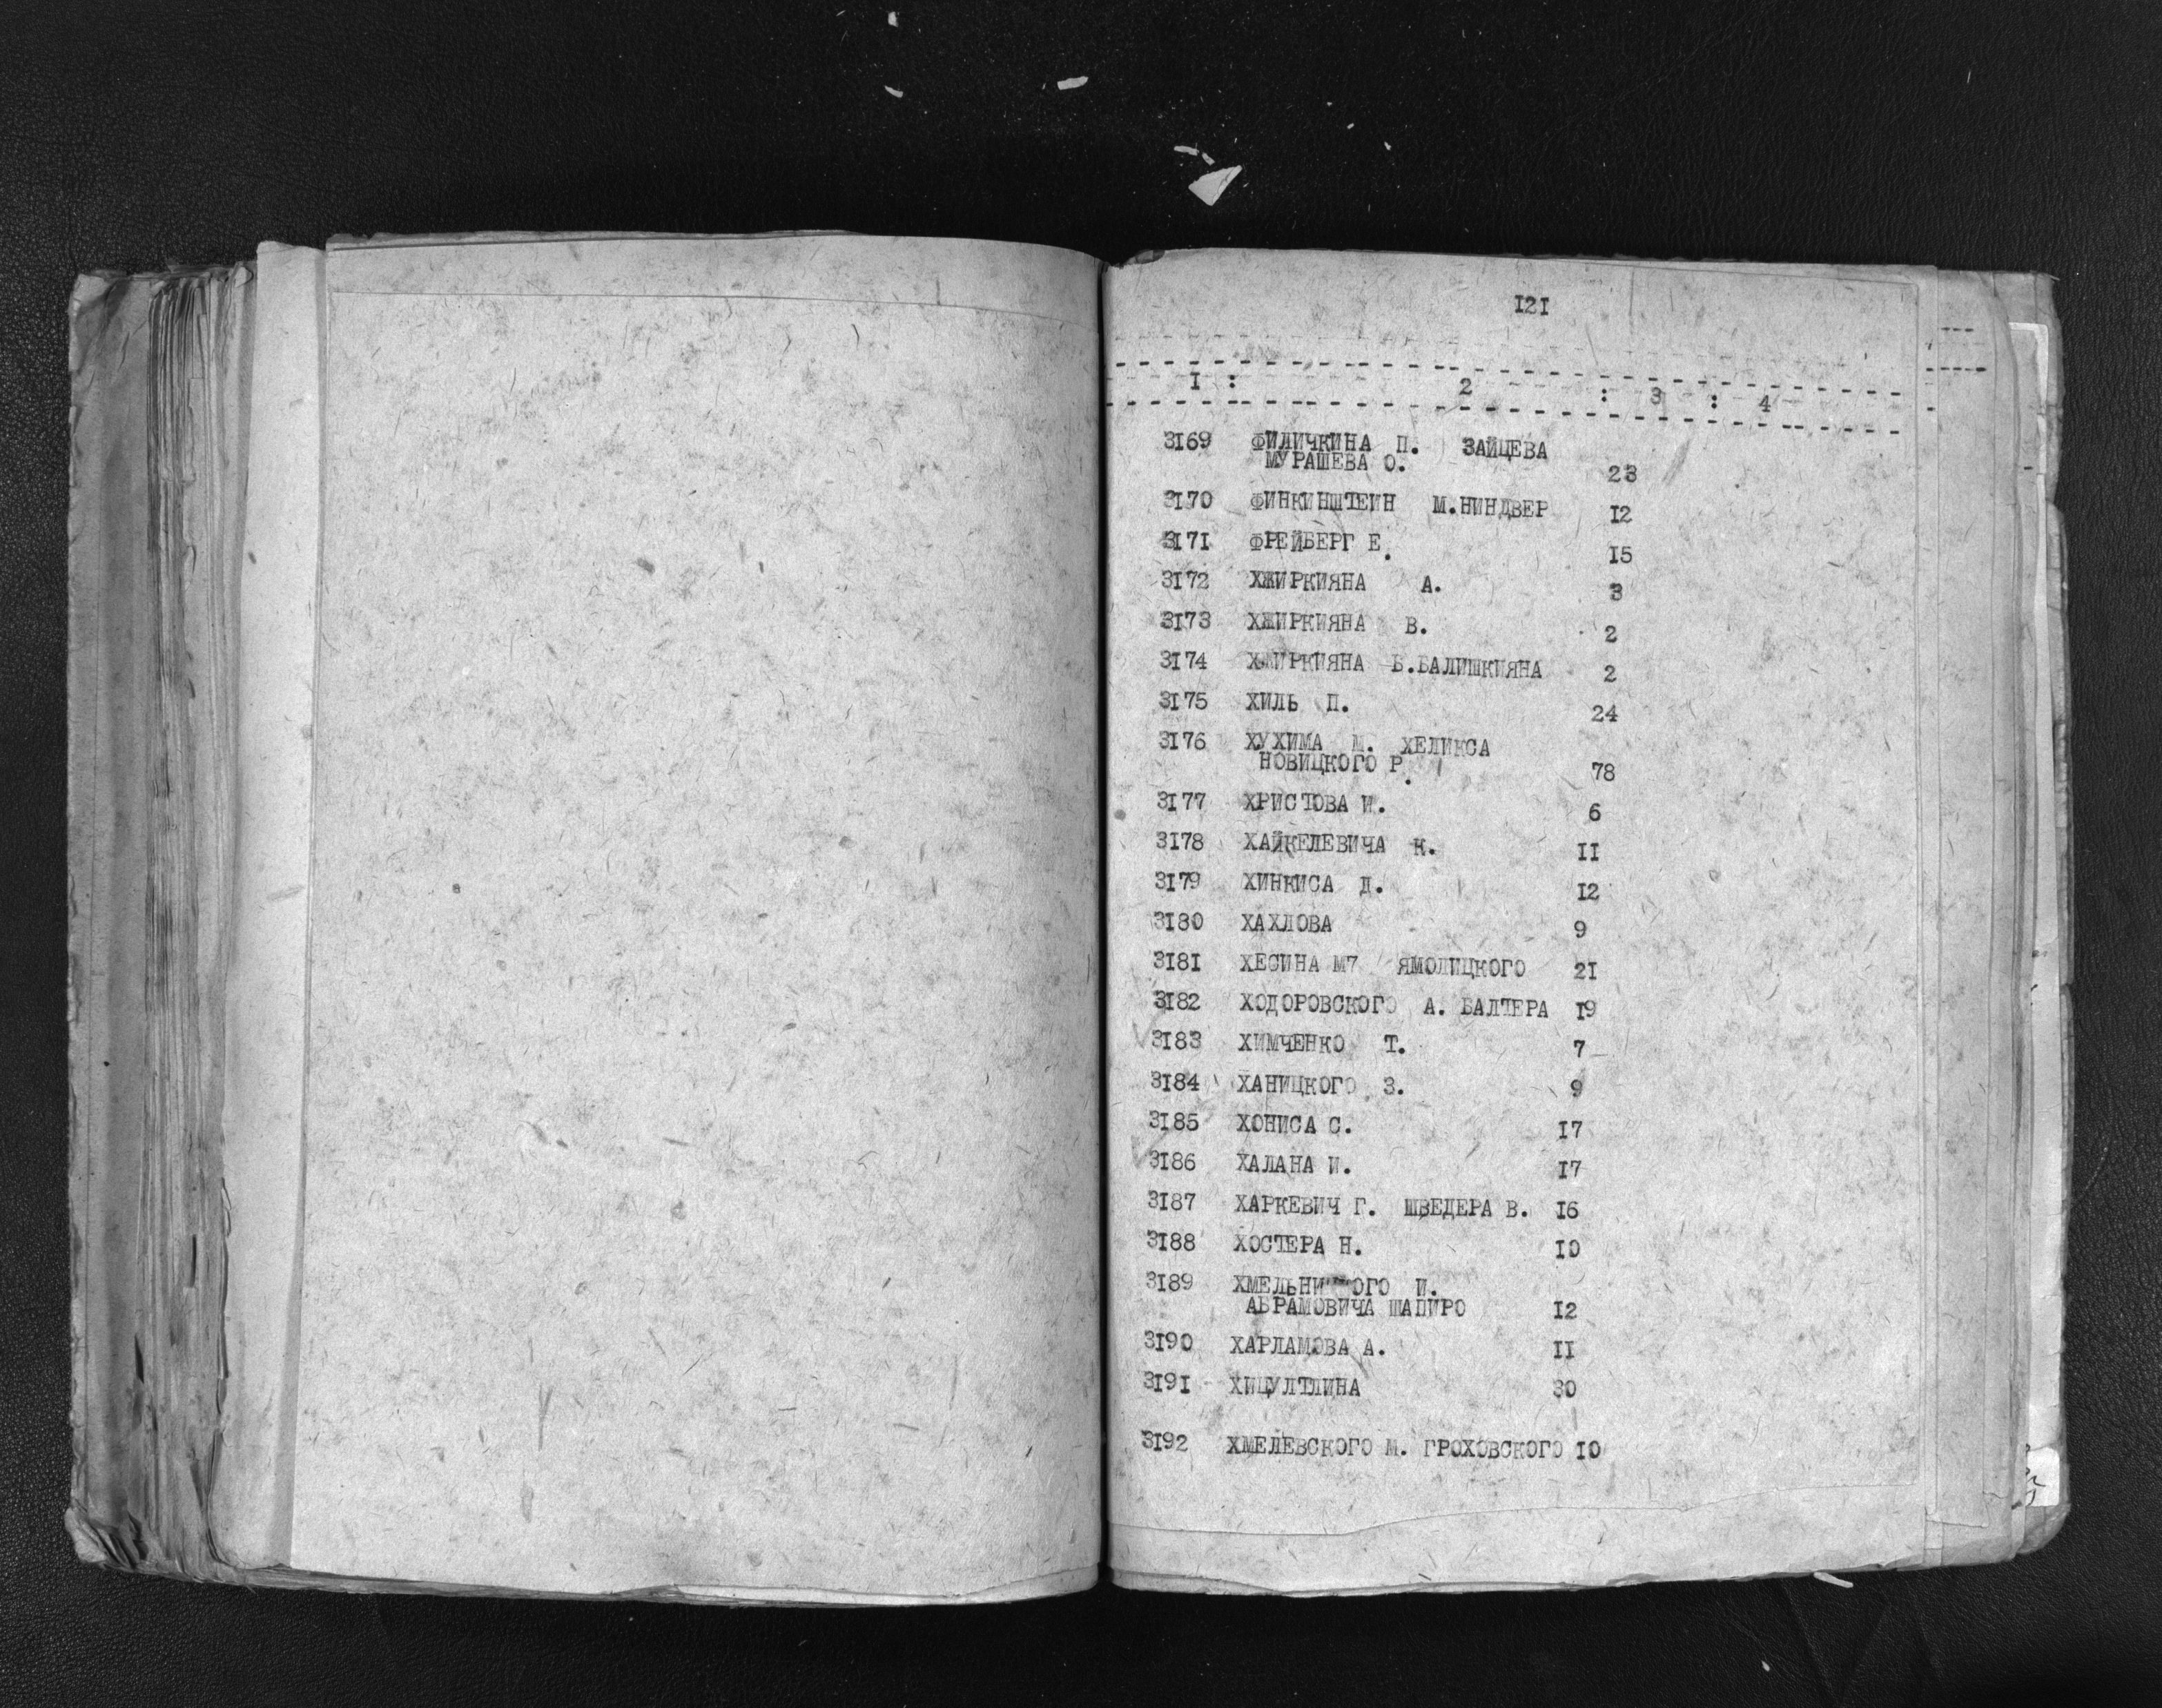 121
1 : 2 : 3 : 4
3169 ФИЛИЧКИНА П. ЗАЙЦЕВА
МУРАШЕВА О. 23
3170 ФИНКИНШТЕИН М.НИНДВЕР 12
3171 ФРЕЙБЕРГ Е. 15
3172 ХЖИРКИЯНА А. 3
3173 ХЖИРКИЯНА В. 2
3174 ХЖИРКИЯНА Б.БАЛИШКИЯНА 2
3175 ХИЛЬ П. 24
3176 ХУХИМА М. ХЕЛИКСА
НОВИЦКОГО Р. 78
3177 ХРИСТОВА И. 6
3178 ХАЙКЕЛЕВИЧА К. 11
3179 ХИНКИСА Д. 12
3180 ХАХЛОВА 9
3181 ХЕСИНА М7 ЯМОЛИЦКОГО 21
3182 ХОДОРОВСКОГО А. БАЛТЕРА 19
3183 ХИМЧЕНКО Т. 7
3184 ХАНИЦКОГО З. 9
3185 ХОНИСА С. 17
3186 ХАЛАНА И. 17
3187 ХАРКЕВИЧ Г. ШВЕДЕРА В. 16
3188 ХОСТЕРА Н. 10
3189 И.
АБРАМОВИЧА ШАПИРО 12
3190 ХАРЛАМОВА А. 11
3191 ХИЦУЛТЛИНА 30
3192 ХМЕЛЕВСКОГО М. ГРОХОВСКОГО 10